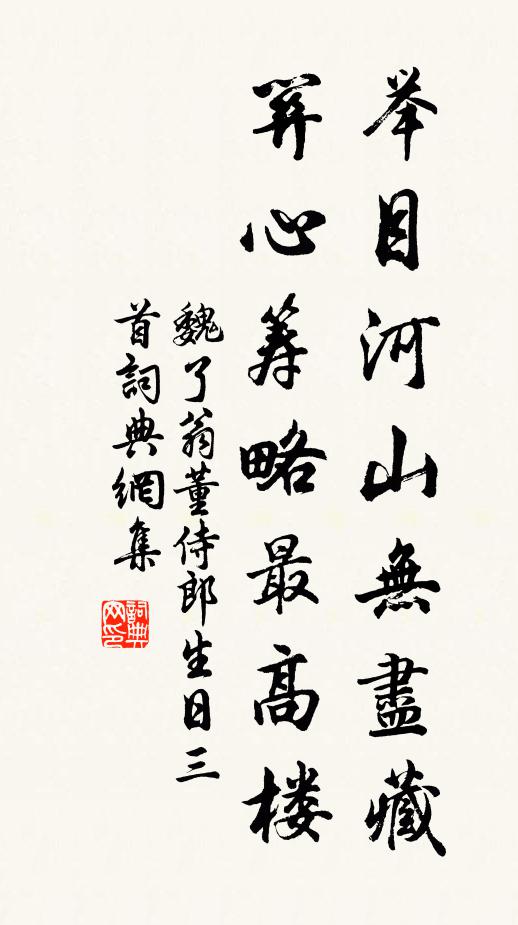 举目河山無盡藏
開心筹略最高楼
魏了翁董侍郎生日三
首詞典網集
詞典
网印